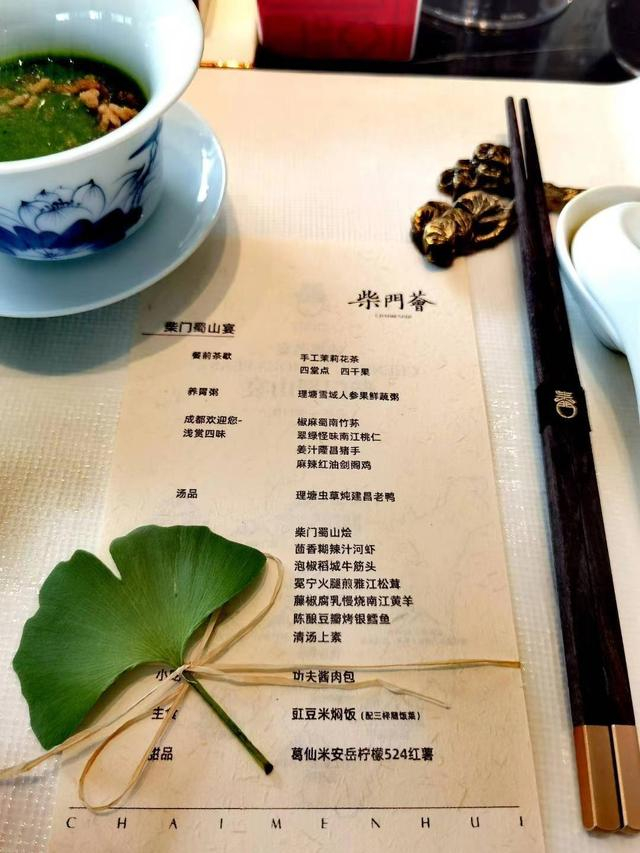 柴門薈
CHAIMENHUI
柴门蜀山宴
餐前茶歇 手工茉莉花茶
四堂点 四干果
养胃粥 理塘雪域人参果鲜蔬粥
成都欢迎您- 椒麻蜀南竹荪
浅赏四味 翠绿怪味南江桃仁
姜汁隆昌猪手
麻辣红油剑阁鸡
汤品 理塘虫草炖建昌老鸭
柴门蜀山烩
茴香糊辣汁河虾
泡椒稻城牛筋头
冕宁火腿煎雅江松茸
藤椒腐乳慢烧南江黄羊
陈酿豆瓣烤银鳕鱼
清汤上素
功夫酱肉包
主食 豇豆米焖饭（配三样随饭菜）
甜品 葛仙米安岳柠檬524红薯
CHAIMENHUI